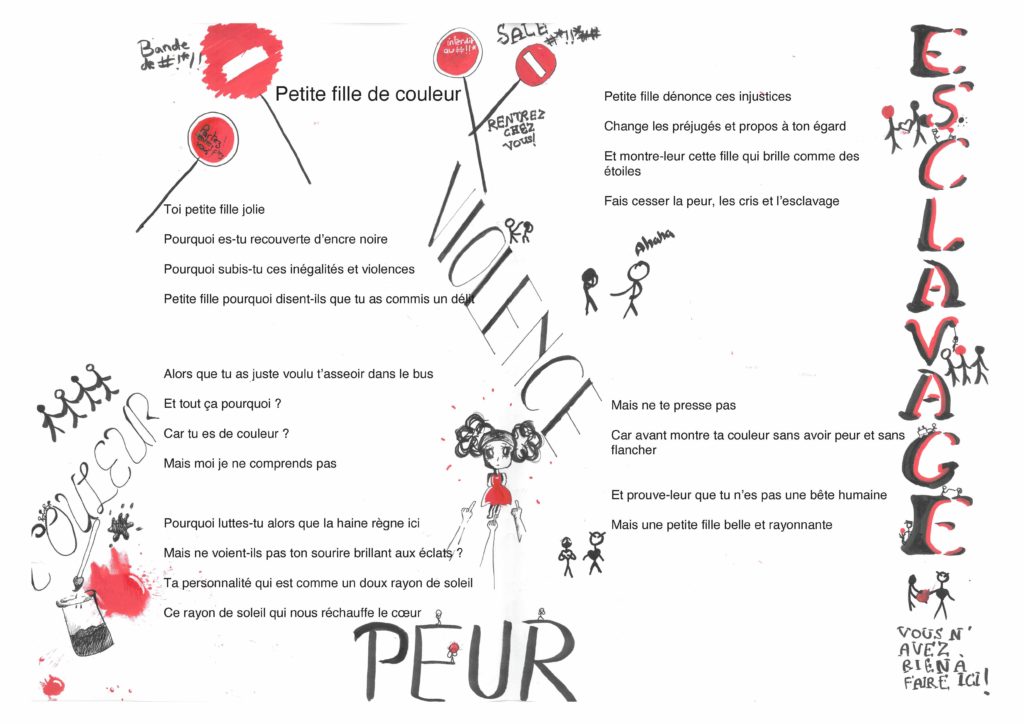 Bande
de #!*!!
interdit
au #!!!*
SALE
#*!!*##
Petite fille de couleur
RENTREZ
CHEZ
VOUS!
Partez!
vous!
VIOLENCE
Toi petite fille jolie
Pourquoi es-tu recouverte d’encre noire
Pourquoi subis-tu ces inégalités et violences
Petite fille pourquoi disent-ils que tu as commis un délit
Alors que tu as juste voulu t’asseoir dans le bus
Et tout ça pourquoi ?
Car tu es de couleur ?
Mais moi je ne comprends pas
COULEUR
Pourquoi luttes-tu alors que la haine règne ici
Mais ne voient-ils pas ton sourire brillant aux éclats ?
Ta personnalité qui est comme un doux rayon de soleil
Ce rayon de soleil qui nous réchauffe le cœur
PEUR
Petite fille dénonce ces injustices
Change les préjugés et propos à ton égard
Et montre-leur cette fille qui brille comme des
étoiles
Fais cesser la peur, les cris et l’esclavage
Ahaha
Mais ne te presse pas
Car avant montre ta couleur sans avoir peur et sans
flancher
Et prouve-leur que tu n’es pas une bête humaine
Mais une petite fille belle et rayonnante
ESCLAVAGE
VOUS N'
AVEZ
RIEN À
FAIRE ICI!